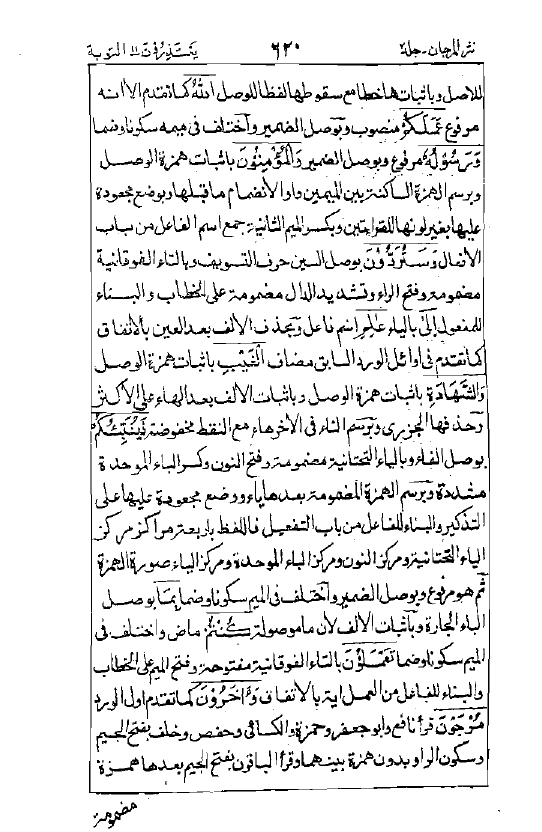 نثر المرجان۔جلد ٢ ٦٢٠ يعتذرون ١١ التوبة
للاصل وباثباتها خطا مع سقوطها لفظا للوصل اللهُ كما تقدم الا انه
مرفوع عَمَلَكُمْ منصوب وبوصل الضمير واختلف فى ميمه سكونا وضما
وَرَسُولُهُ مرفوع وبوصل الضمير وَالْمُؤْمِنُونَ باثبات همزة الوصل
وبرسم الهمزة الساكنة بين الميمين واوا لانضمام ما قبلها وبوضع مجعودة
عليها بغير لونها للقراءتين وبكسر الميم الثانية جمع اسم الفاعل من باب
الافعال وَسَتُرَدُّونَ بوصل السين حرف التسويف وبالتاء الفوقانية
مضمومة وفتح الراء وتشديد الدال مضمومة على الخطاب والبناء
للمفعول اِلَىٰ بالياء عٰلِمِ اسم فاعل وبحذف الالف بعد العين بالاتفاق
كما تقدم فى اوائل الورد السابق مضاف الْغَيْبِ باثبات همزة الوصل
وَالشَّهَادَةِ باثبات همزة الوصل وباثبات الالف بعد الهاء على الاكثر
وحذفها الجزرى وبرسم التاء فى الاخر هاء مع النقط مخفوضة فَيُنَبِّئُكُمْ
بوصل الفاء وبالياء التحتانية مضمومة وفتح النون وكسر الباء الموحدة
مشددة وبرسم الهمزة المضمومة بعدها ياء ووضع مجعودة عليها على
التذكير والبناء للفاعل من باب التفعيل فاللفظ باربعة مراكز مركز
الياء التحتانية ومركز النون ومركز الباء الموحدة ومركز الياء صورة الهمزة
ثم هو مرفوع وبوصل الضمير واختلف فى الميم سكونا وضما بِمَا بوصل
الباء الجارة وباثبات الالف لان ما موصولة كُنْتُمْ ماض واختلف فى
الميم سكونا وضما تَعْمَلُونَ بالتاء الفوقانية مفتوحة وفتح الميم على الخطاب
والبناء للفاعل من العمل اية بالاتفاق وَاٰخَرُونَ كما تقدم اول الورد
مُرْجَوْنَ قرأ نافع وابو جعفر وحمزة والكسائى وحفص وخلف بفتح الجيم
وسكون الواو بدون همزة بينهما وقرأ الباقون بفتح الجيم بعدها همزة
مضمومة